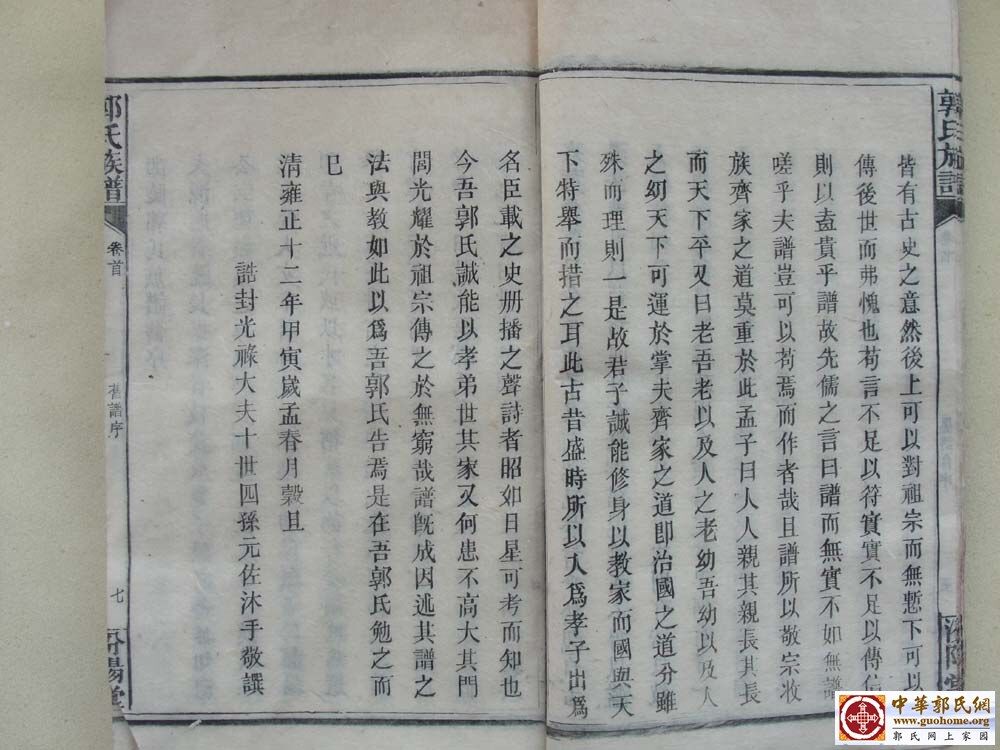 郭氏族譜
皆有古史之意然後上可以對祖宗而無慙下可以
傳後世而弗愧也苟言不足以符實實不足以傳信
則以盍貴乎譜故先儒之言曰譜而無實不如無譜
嗟乎夫譜豈可以苟焉而作者哉且譜所以敬宗收
族齊家之道莫重於此孟子曰人人親其親長其長
而天下平又曰老吾老以及人之老幼吾幼以及人
之幼天下可運於掌夫齊家之道即治國之道分雖
殊而理則一是故君子誠能修身以教家而國與天
下特舉而措之耳此古昔盛時所以入爲孝子出爲
名臣載之史册播之聲詩者昭如日星可考而知也
今吾郭氏誠能以孝弟世其家又何患不高大其門
閭光耀於祖宗傳之於無窮哉譜旣成因述其譜之
法與教如此以爲吾郭氏告焉是在吾郭氏勉之而
巳
清雍正十二年甲寅歲孟春月榖旦
誥封光祿大夫十世四孫元佐沐手敬譔
郭氏族譜
卷首
舊譜序
七
汾陽堂
中華郭氏網
www.guohome.org
郭氏网上家園